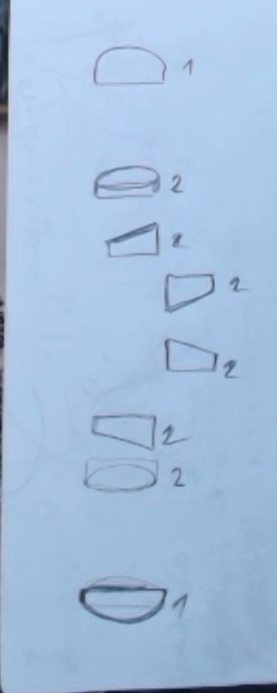 1
2
2
2
2
2
2
1